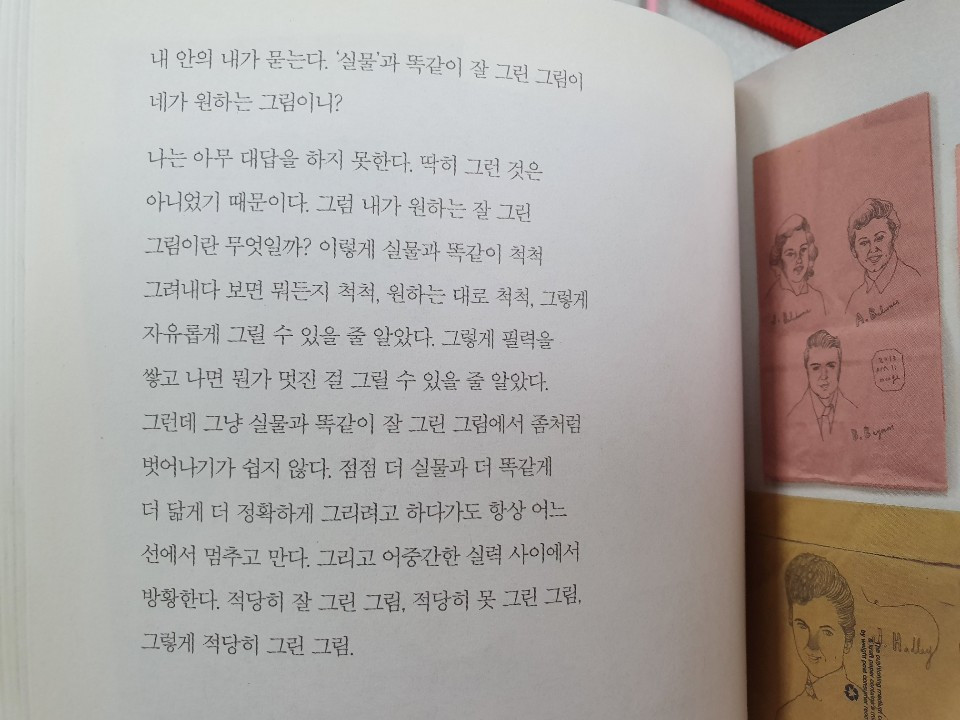 내 안의 내가 묻는다. ‘실물’과 똑같이 잘 그린 그림이
네가 원하는 그림이니?
나는 아무 대답을 하지 못한다. 딱히 그런 것은
아니었기 때문이다. 그럼 내가 원하는 잘 그린
그림이란 무엇일까? 이렇게 실물과 똑같이 척척
그려내다 보면 뭐든지 척척, 원하는 대로 척척, 그렇게
자유롭게 그릴 수 있을 줄 알았다. 그렇게 필력을
쌓고 나면 뭔가 멋진 걸 그릴 수 있을 줄 알았다.
그런데 그냥 실물과 똑같이 잘 그린 그림에서 좀처럼
벗어나기가 쉽지 않다. 점점 더 실물과 더 똑같게
더 닮게 더 정확하게 그리려고 하다가도 항상 어느
선에서 멈추고 만다. 그리고 어중간한 실력 사이에서
방황한다. 적당히 잘 그린 그림, 적당히 못 그린 그림,
그렇게 적당히 그린 그림.
2013
Hadley
The cushioning